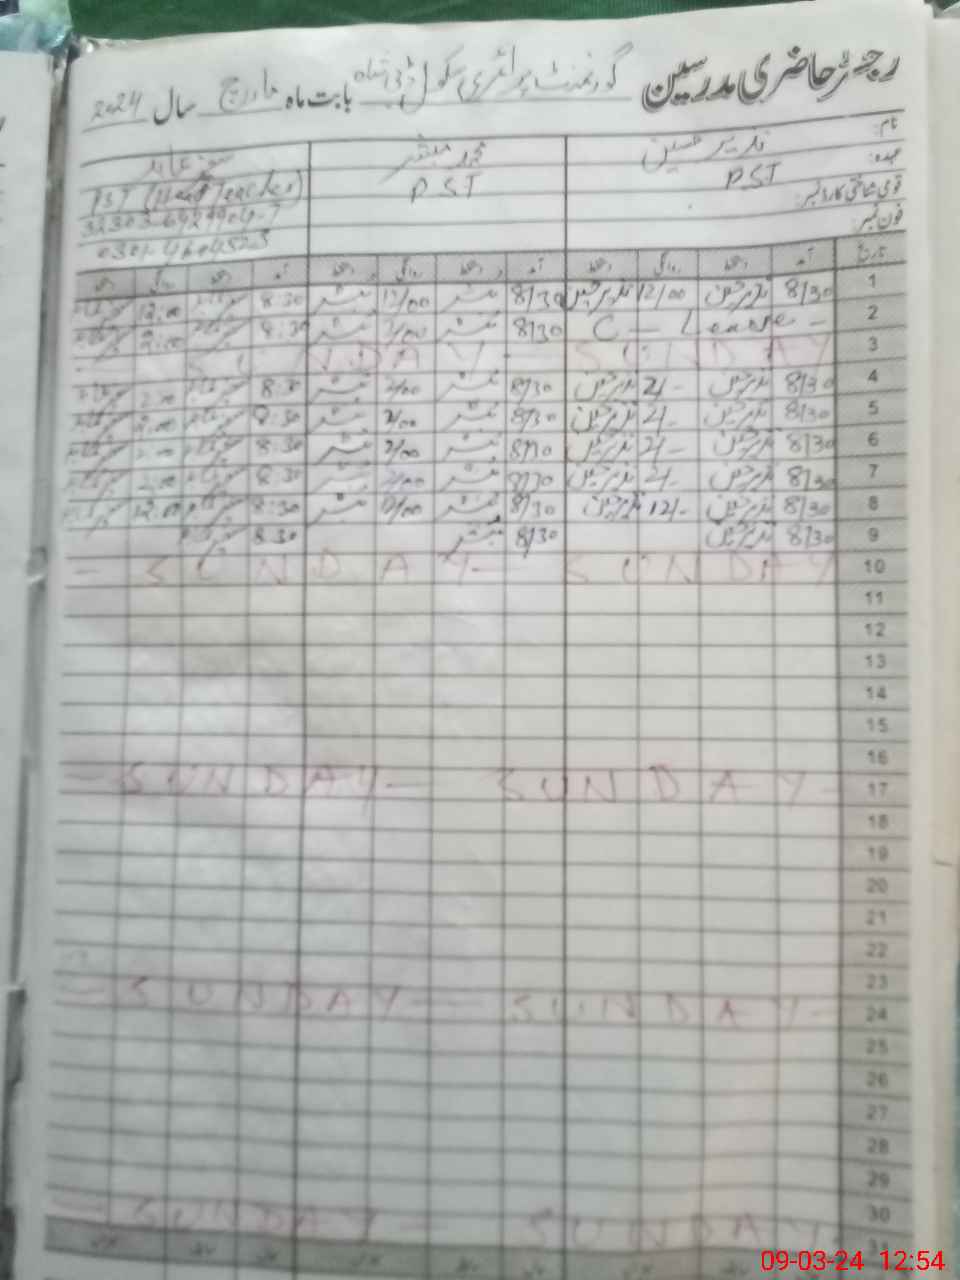 رجسٹر حاضری مدرسین گورنمنٹ پرائمری سکول بابت ماہ مارچ سال 2024
نام: نذیر حسین محمد مبشر
عہدہ: PST P.ST PST (Head Teacher)
قومی شناختی کارڈ نمبر:
فون نمبر:
تاریخ آمد دستخط روانگی دستخط آمد دستخط روانگی دستخط آمد دستخط روانگی دستخط
1 8/30 نذیر حسین 12/00 نذیر حسین 8/30 مبشر 12/00 مبشر 8:30 12:00
2 C - Leave - 8/30 مبشر 2/00 مبشر 8:30 2:00
3 SUNDAY - SUNDAY
4 8/30 نذیر حسین 2/- نذیر حسین 8/30 مبشر 2/00 مبشر 8:30 2:00
5 8/30 نذیر حسین 2/- نذیر حسین 8/30 مبشر 2/00 مبشر 8:30 2:00
6 8/30 نذیر حسین 2/- نذیر حسین 8/30 مبشر 2/00 مبشر 8:30 2:00
7 8/30 نذیر حسین 2/- نذیر حسین 8/30 مبشر 2/00 مبشر 8:30 2:00
8 8/30 نذیر حسین 12/- نذیر حسین 8/30 مبشر 12/00 مبشر 8:30 12:00
9 8/30 نذیر حسین 8/30 مبشر 8:30
10 - SUNDAY - SUNDAY
11
12
13
14
15
16
17 - SUNDAY - SUNDAY -
18
19
20
21
22
23
24 - SUNDAY - SUNDAY -
25
26
27
28
29
30
31 - SUNDAY - SUNDAY
09-03-24 12:54